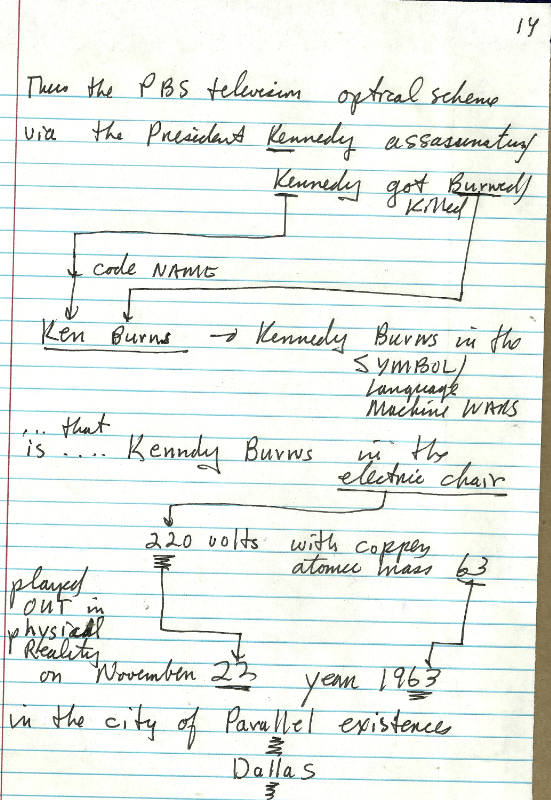 14
Thus the PBS television optical scheme
via the President Kennedy assassination
Kennedy got Burned/
Killed
code NAME
Ken Burns → Kennedy Burns in the
SYMBOL/
Language
Machine WARS
... that
is .... Kenndy Burns in the
electric chair
220 volts with copper
atomic mass 63
played
OUT in
physical
Reality
on November 22 year 1963
in the city of Parallel existences
Dallas